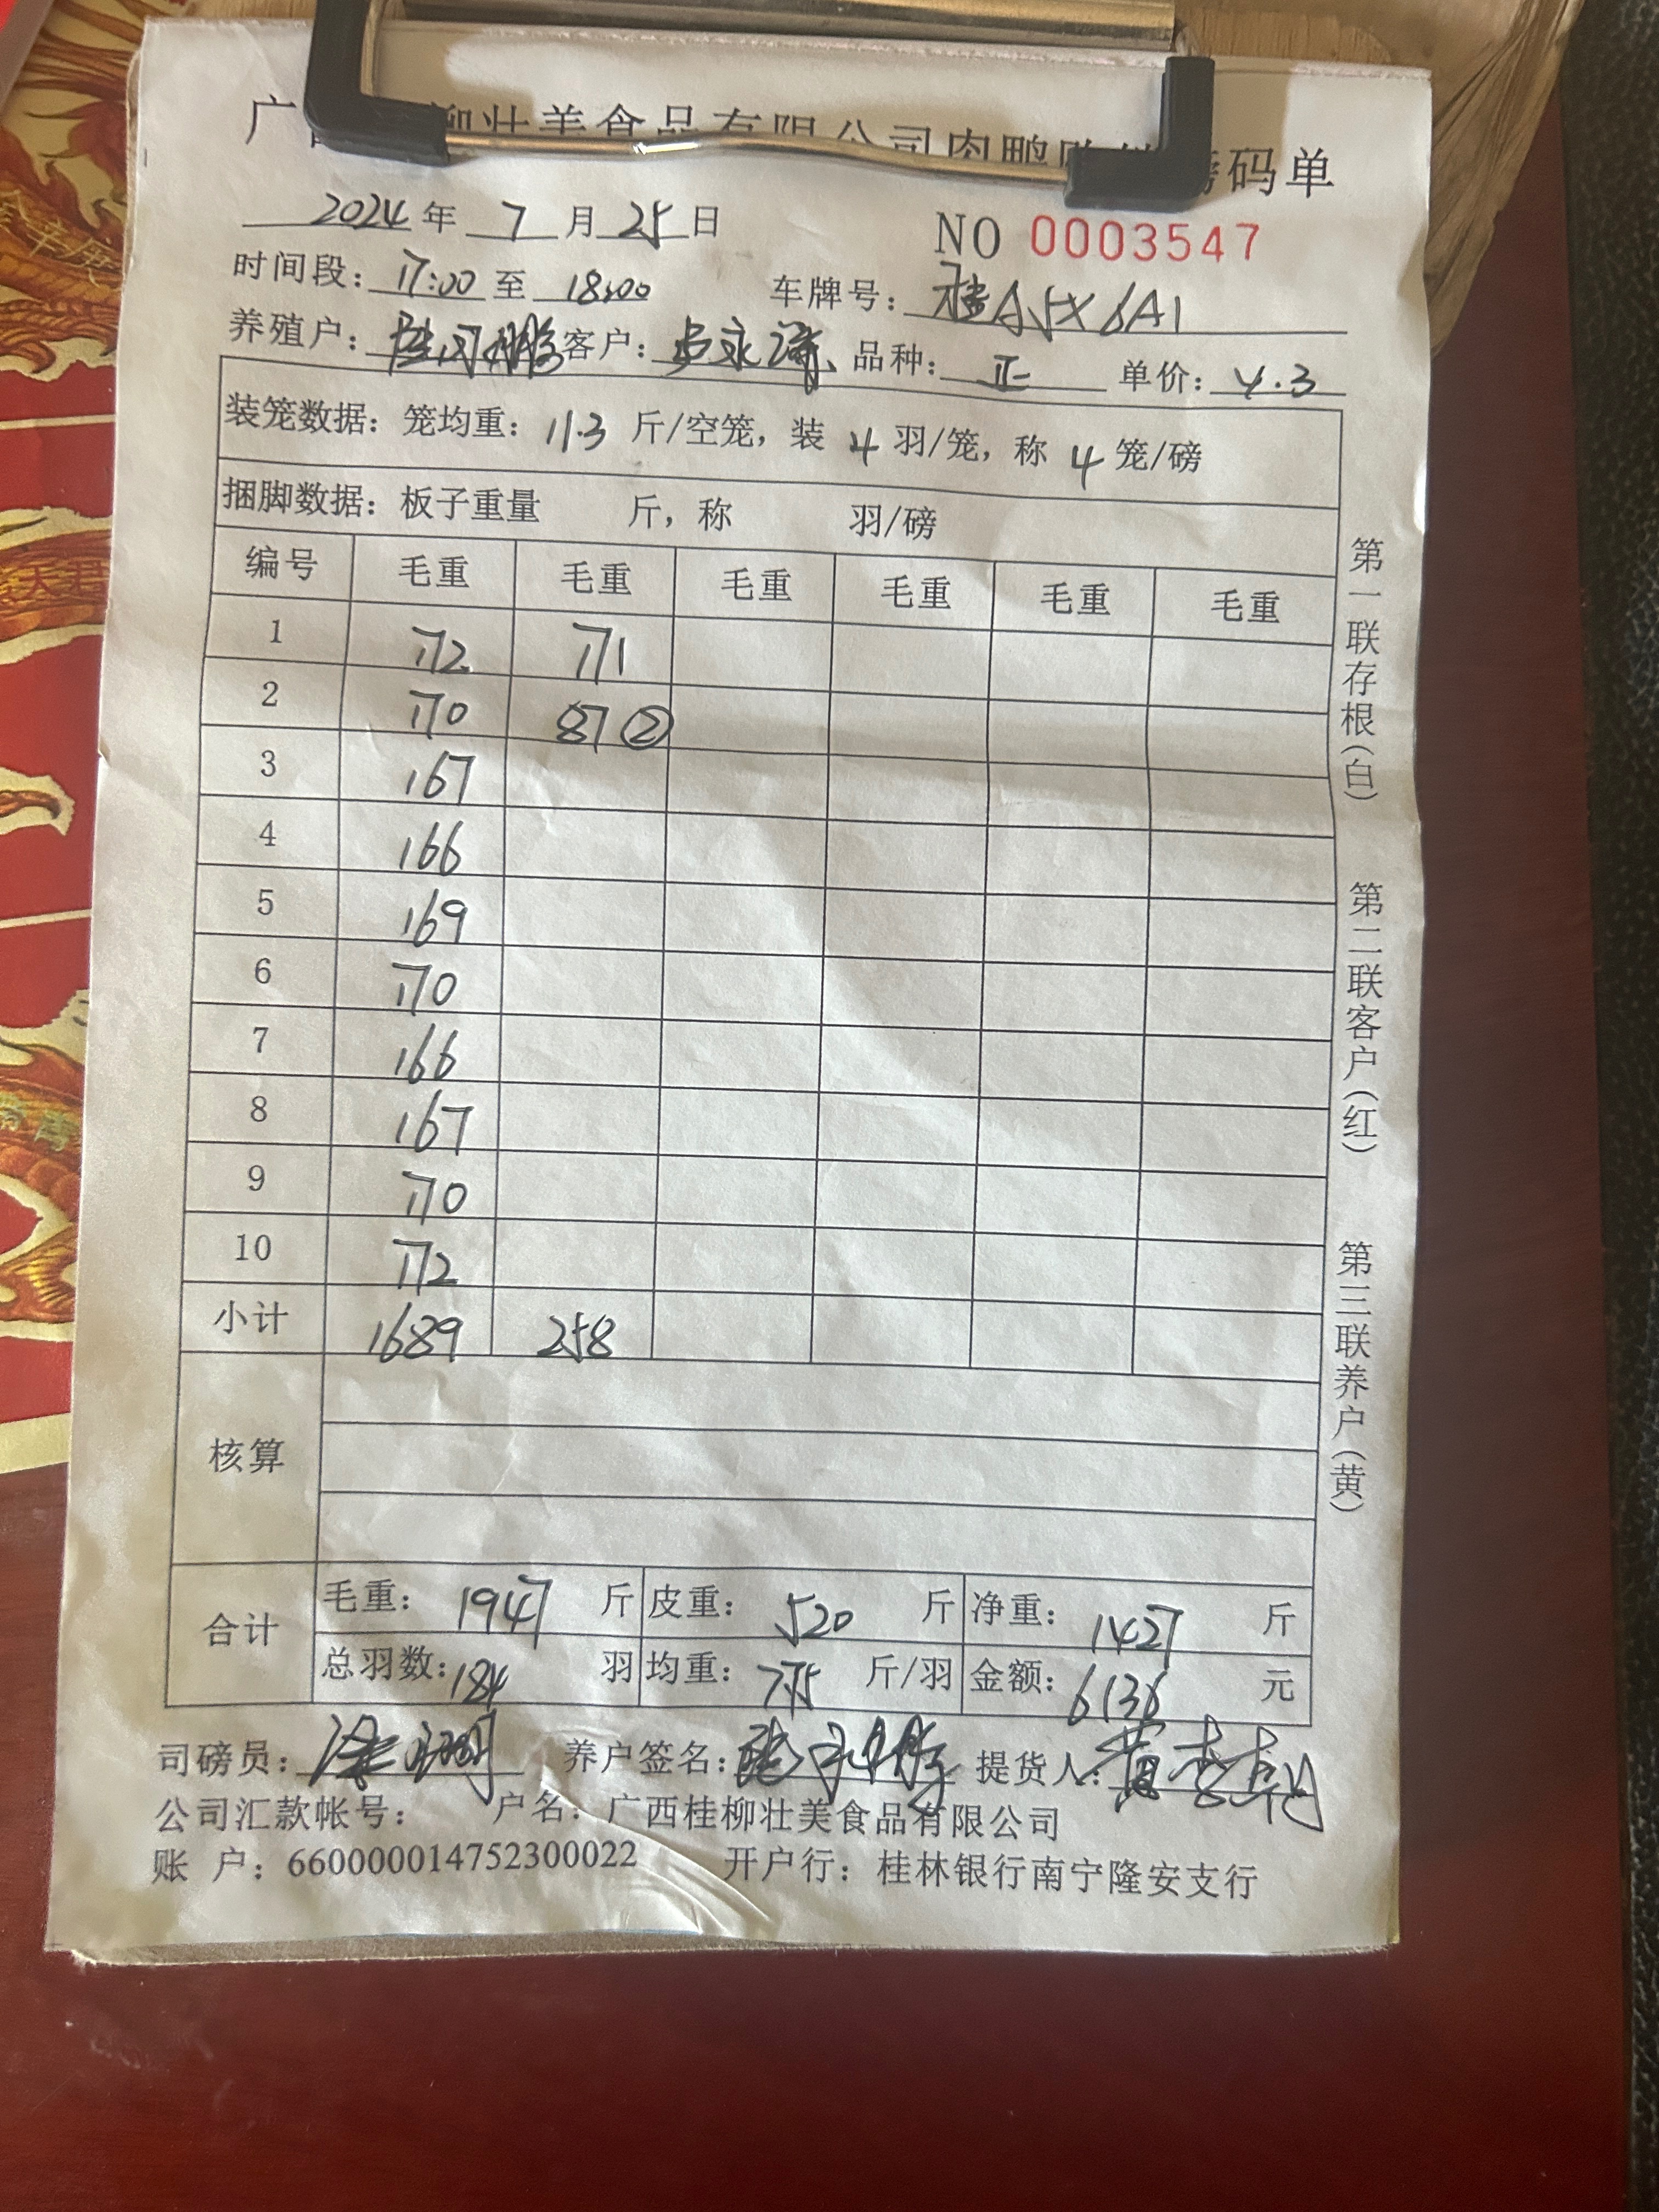 广西桂柳壮美食品有限公司肉鸭 磅码单
2024年 7 月 25 日 NO 0003547
时间段: 17:00 至 18:00 车牌号: 桂A5X6A1
养殖户: 客户: 卢永 品种: 正 单价: 4.3
装笼数据: 笼均重: 11.3 斤/空笼, 装 4 羽/笼, 称 4 笼/磅
捆脚数据: 板子重量 斤, 称 羽/磅
编号 毛重 毛重 毛重 毛重 毛重 毛重
1 172 171
2 170 87 ②
3 167
4 166
5 169
6 170
7 166
8 167
9 170
10 172
小计 1689 258
核算
合计 毛重: 1947 斤 皮重: 520 斤 净重: 1427 斤
总羽数: 184 羽 均重: 7.75 斤/羽 金额: 6136 元
司磅员: 养户签名: 提货人:
公司汇款帐号: 户名: 广西桂柳壮美食品有限公司
账 户: 660000014752300022 开户行: 桂林银行南宁隆安支行
第一联存根(白) 第二联客户(红) 第三联养户(黄)